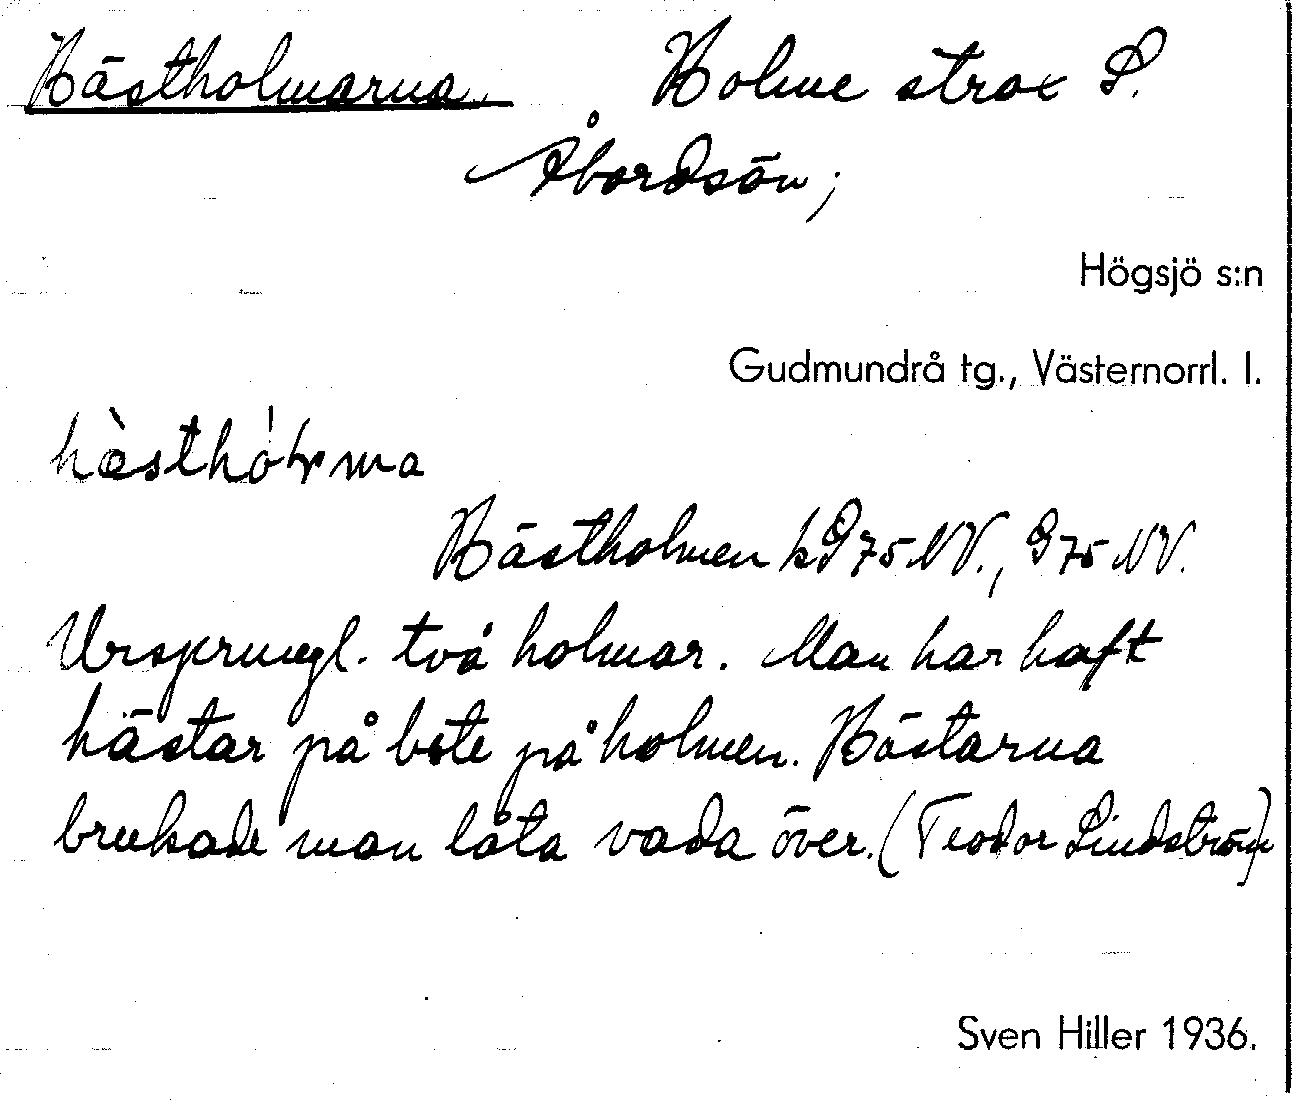 Hästholmarna. Holme strax S.
Åbordsön;
Högsjö s:n
Gudmundrå tg., Västernorrl. l.
hästhólma
Hästholmen k G 75 NV., G 75 NV.
Ursprungl. två holmar. Man har haft
hästar på bete på holmen. Hästarna
brukade man låta vada över. (Teodor Lindström)
Sven Hiller 1936.